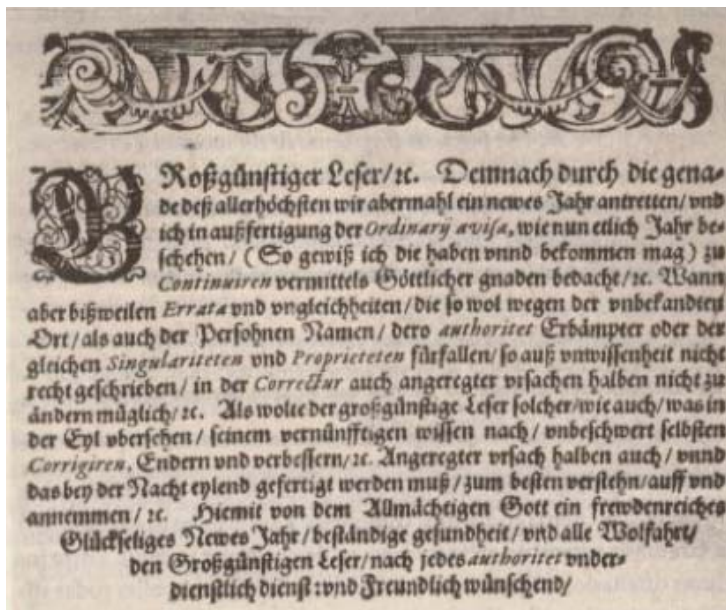 GRoßgünstiger Leser/ꝛc. Demnach durch die gena⸗
de deß allerhöchsten wir abermahl ein newes Jahr antretten/ vnd
ich in außfertigung der Ordinarij avisa, wie nun etlich Jahr be⸗
schehen/ (So gewiß ich die haben vnnd bekommen mag) zu
Continuiren vermittels Göttlicher gnaden bedacht/ꝛc. Wann
aber bißweilen Errata vnd vngleichheiten/ die so wol wegen der vnbekandten
Ort/ als auch der Persohnen Namen/ dero authoritet Erbämpter oder der
gleichen Singulariteten vnd Proprieteten fürfallen/ so auß vnwissenheit nicht
recht geschrieben/ in der Correctur auch angeregter vrsachen halben nicht zu
ändern müglich/ꝛc. Als wolte der großgünstige Leser solcher/ wie auch/ was in
der Eyl vbersehen/ seinem vernünfftigen wissen nach/ vnbeschwert selbsten
Corrigiren, Endern vnd verbessern/ꝛc. Angeregter vrsach halben auch/ vnnd
das bey der Nacht eylend gefertigt werden muß/ zum besten verstehn/ auff vnd
annemmen/ ꝛc. Hiemit von dem Allmächtigen Gott ein frewdenreiches
Glückseliges Newes Jahr/ beständige gesundheit/ vnd alle Wolfahrt/
den Großgünstigen Leser/ nach jedes authoritet vnder⸗
dienstlich dienst: vnd Freundlich wünschend/